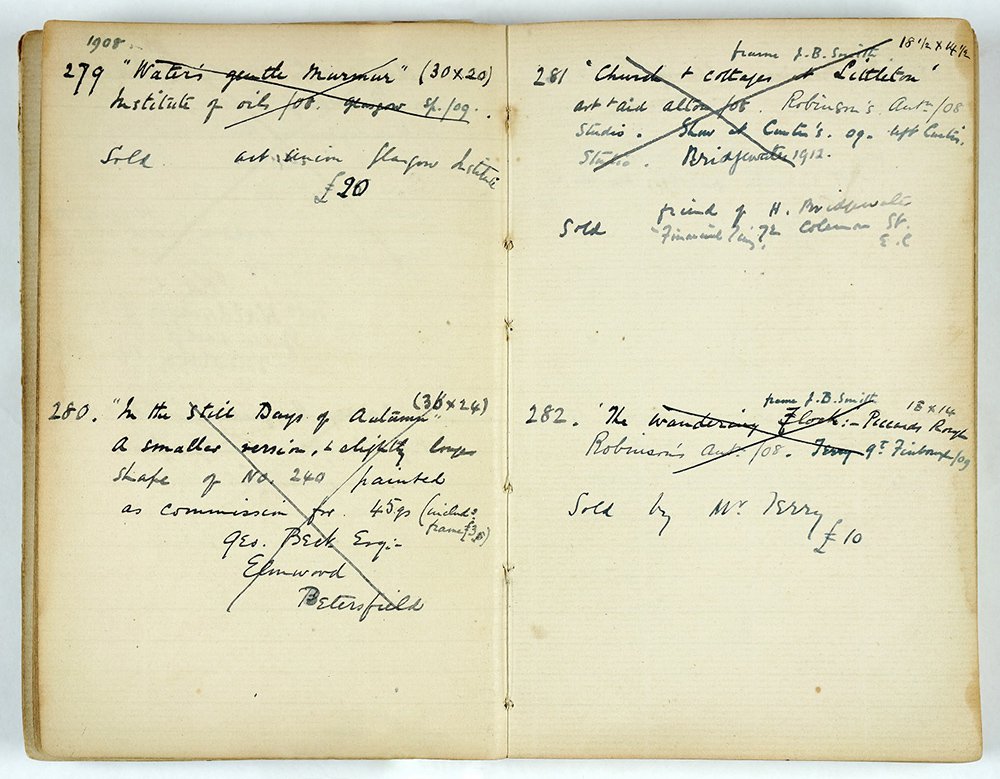 1908
279 "Water's gentle Murmur" (30 x 20)
Institute of oils /08. Glasgow Sp./09.
Sold art union Glasgow Institute
£20
280. "In the Still Days of Autumn" (36 x 24)
A smaller version, & slightly longer
shape of No. 240 painted
as commission for 45gs (includs
frame £3
Geo. Beck Esq:-
Elmwood
Petersfield
frame J.B. Smith 18 1/2 x 14 1/2
281 "Church & cottages at Littleton"
art & aid /08. Robinson's Autn/08
Studio. Show at Curtis's. 09. left Curtis.
Studio. Bridgewater 1912.
friend of H. Bridgewater
Sold "Financial 72 Coleman St.
E.C
frame J.B. Smith 18 x 14
282. "The Wandering Flock:- Piccards Rough
Robinson's Autn/08. Terry Gt Finborough/09
Sold by Mr Terry
£10